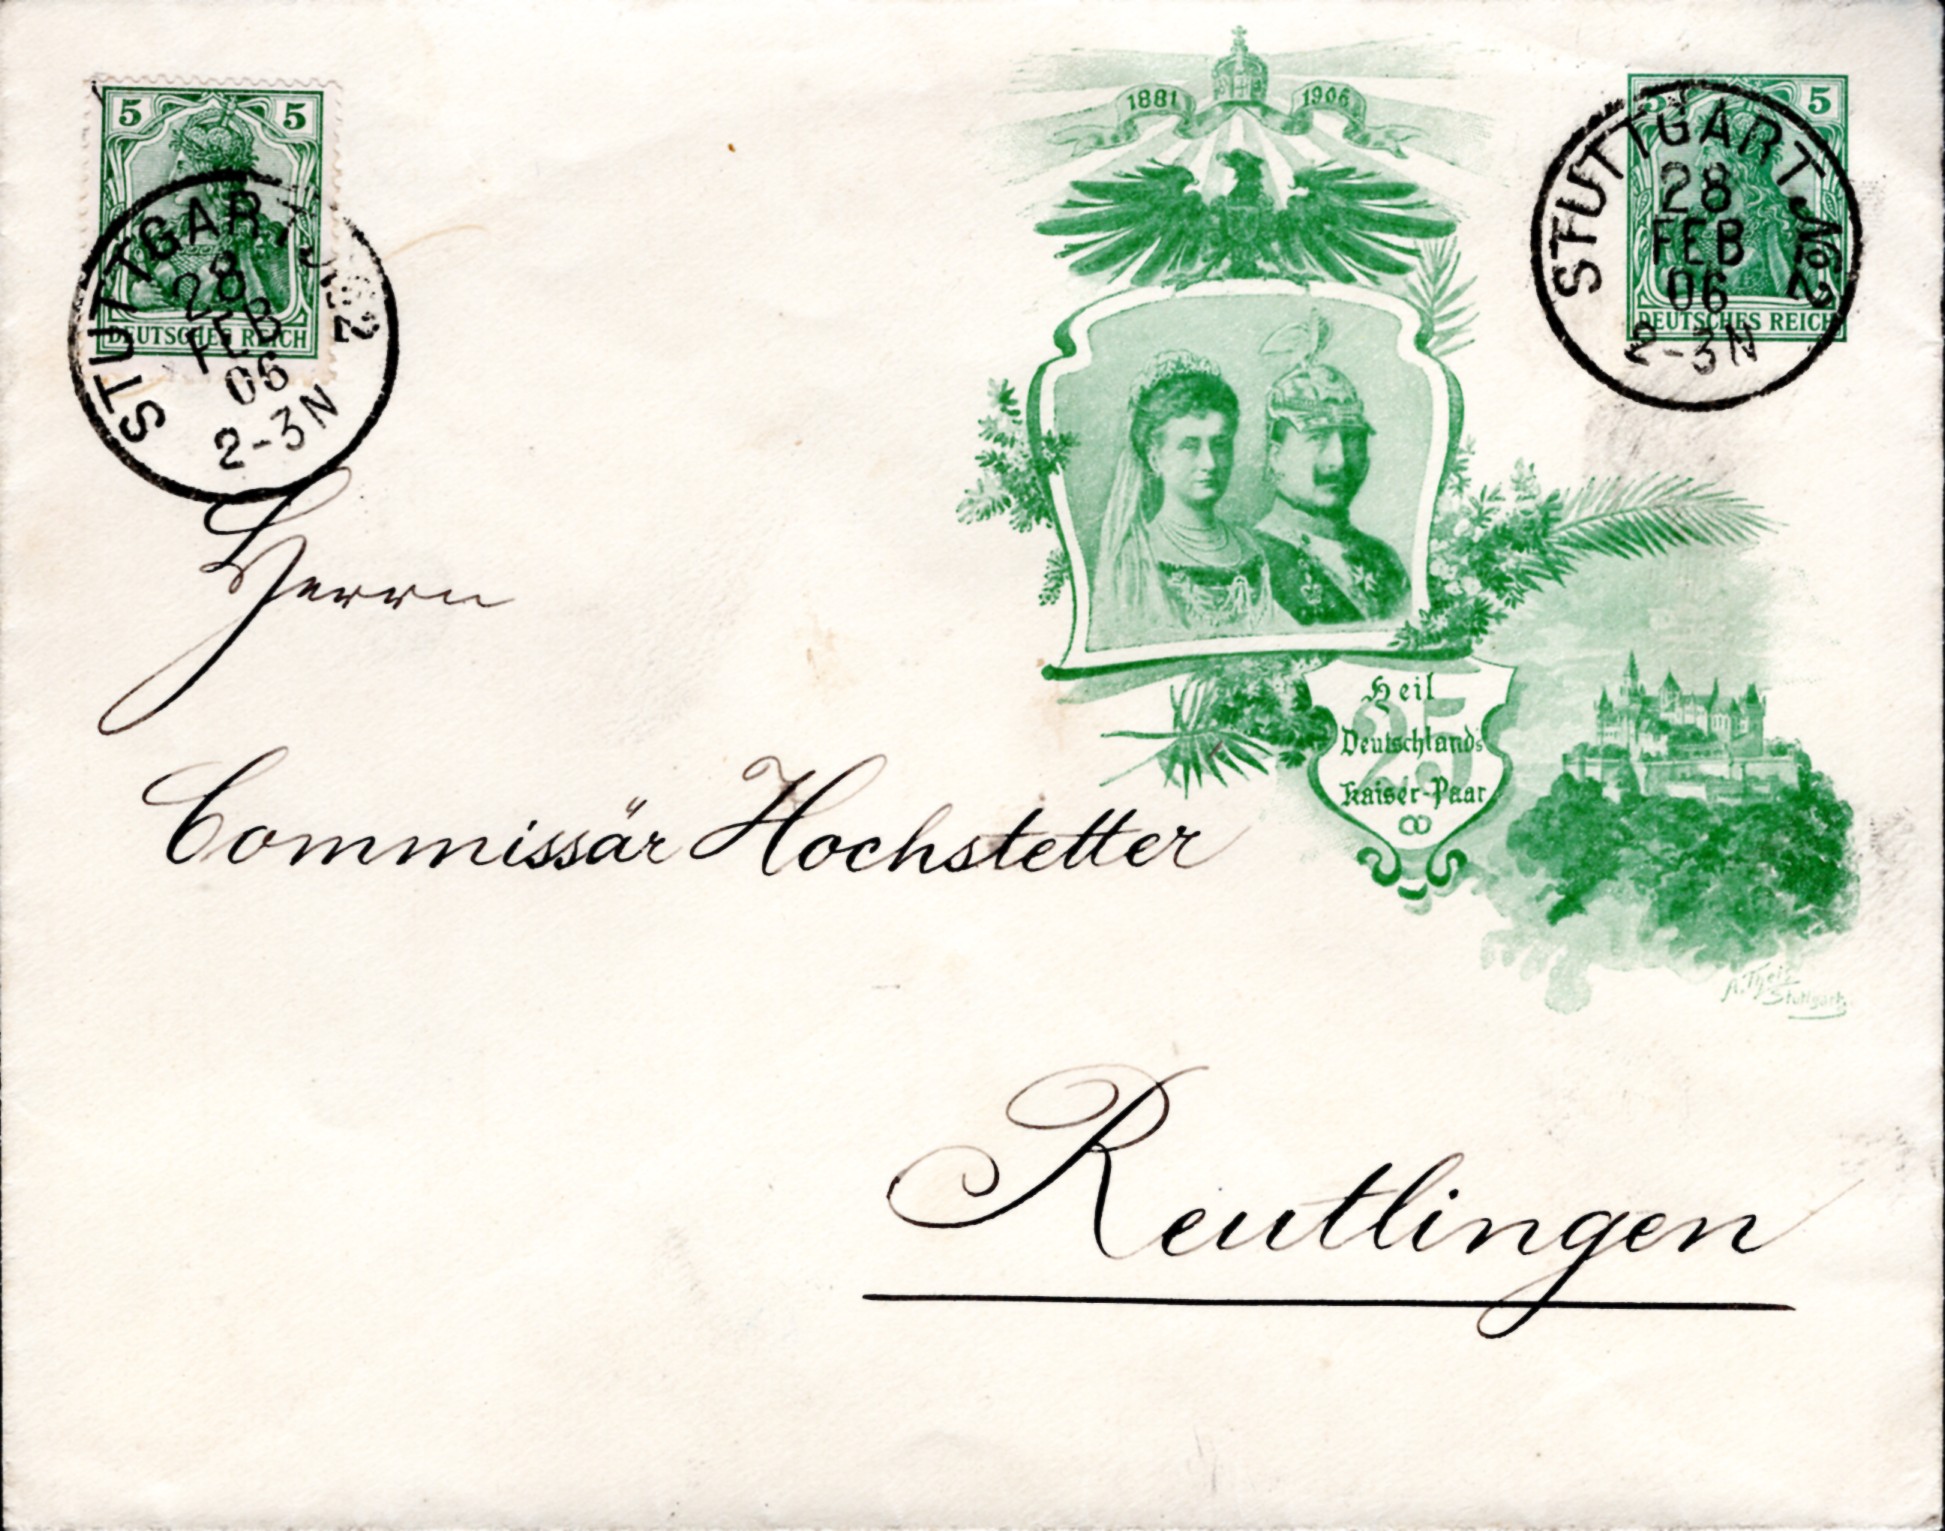 5 5
DEUTSCHES REICH
STUTTGART No 2
28
FEB
06
2-3N
1881 1906
5 5
DEUTSCHES REICH
STUTTGART No 2
28
FEB
06
2-3N
Herrn
25
Heil
Deutschlands
Kaiser-Paar
Commissär Hochstetter
Stuttgart
Reutlingen